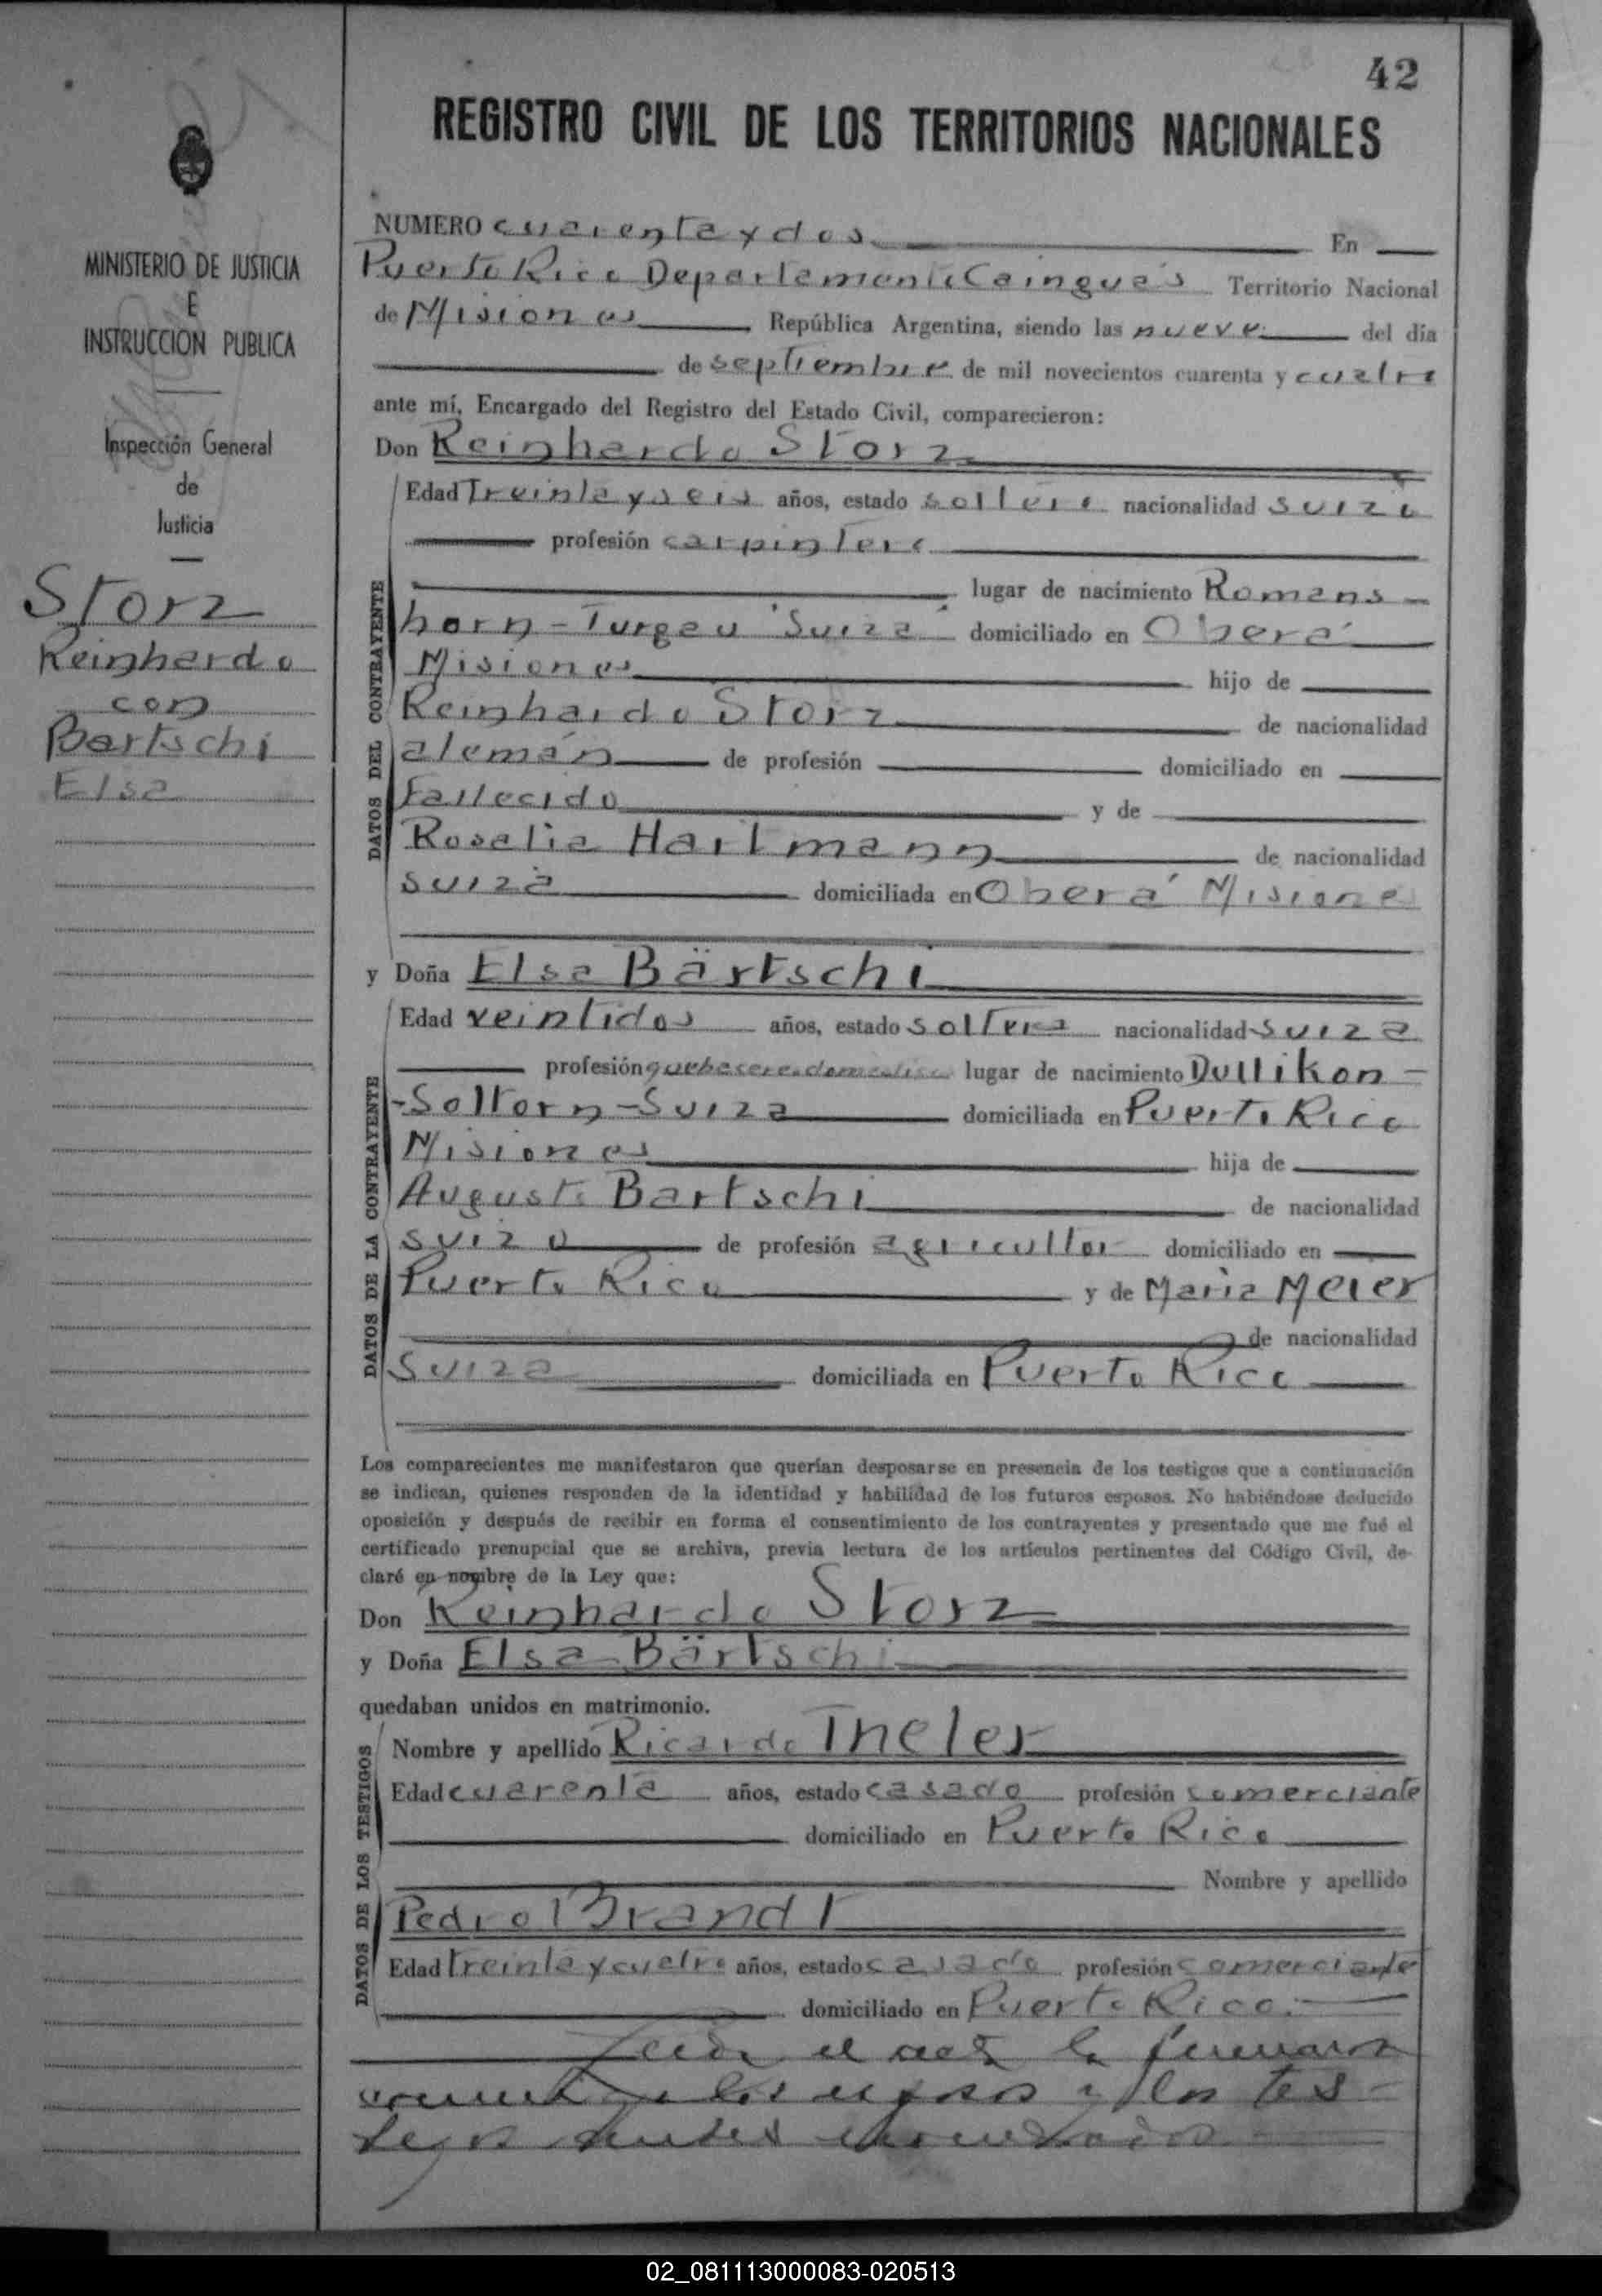 42
REGISTRO CIVIL DE LOS TERRITORIOS NACIONALES
MINISTERIO DE JUSTICIA
E
INSTRUCCION PUBLICA
Inspección General
de
Justicia
Storz
Reinhardo
con
Bartschi
Elsa
NUMERO cuarenta y dos En
Puerto Rico Departamento Cainguás Territorio Nacional
de Misiones República Argentina, siendo las nueve del día
de septiembre de mil novecientos cuarenta y cuatro
ante mí, Encargado del Registro del Estado Civil, comparecieron:
Don Reinhardo Storz
DATOS DEL CONTRAYENTE
Edad Treinta y seis años, estado soltero nacionalidad suizo
profesión carpintero
lugar de nacimiento Romans-
horn - Turgau Suiza domiciliado en Oberá
Misiones hijo de
Reinhardo Storz de nacionalidad
alemán de profesión domiciliado en
Fallecido y de
Rosalia Hartmann de nacionalidad
suiza domiciliada en Oberá Misiones
y Doña Elsa Bärtschi
DATOS DE LA CONTRAYENTE
Edad veintidos años, estado soltera nacionalidad suiza
profesión quehaceres domesticos lugar de nacimiento Dullikon -
-Soltorn-Suiza domiciliada en Puerto Rico
Misiones hija de
Augusto Bartschi de nacionalidad
suizo de profesión agricultor domiciliado en
Puerto Rico y de Maria Meier
de nacionalidad
Suiza domiciliada en Puerto Rico
Los comparecientes me manifestaron que querían desposarse en presencia de los testigos que a continuación
se indican, quienes responden de la identidad y habilidad de los futuros esposos. No habiéndose deducido
oposición y después de recibir en forma el consentimiento de los contrayentes y presentado que me fué el
certificado prenupcial que se archiva, previa lectura de los artículos pertinentes del Código Civil, de-
claré en nombre de la Ley que:
Don Reinhardo Storz
y Doña Elsa Bärtschi
quedaban unidos en matrimonio.
DATOS DE LOS TESTIGOS
Nombre y apellido Ricardo Theler
Edad cuarenta años, estado casado profesión comerciante
domiciliado en Puerto Rico
Nombre y apellido
Pedro Brandt
Edad treinta y cuatro años, estado casado profesión comerciante
domiciliado en Puerto Rico.
Leida el acta la firmaron
conmigo los esposos y los tes-
tigos antes enunciados
02_081113000083-020513